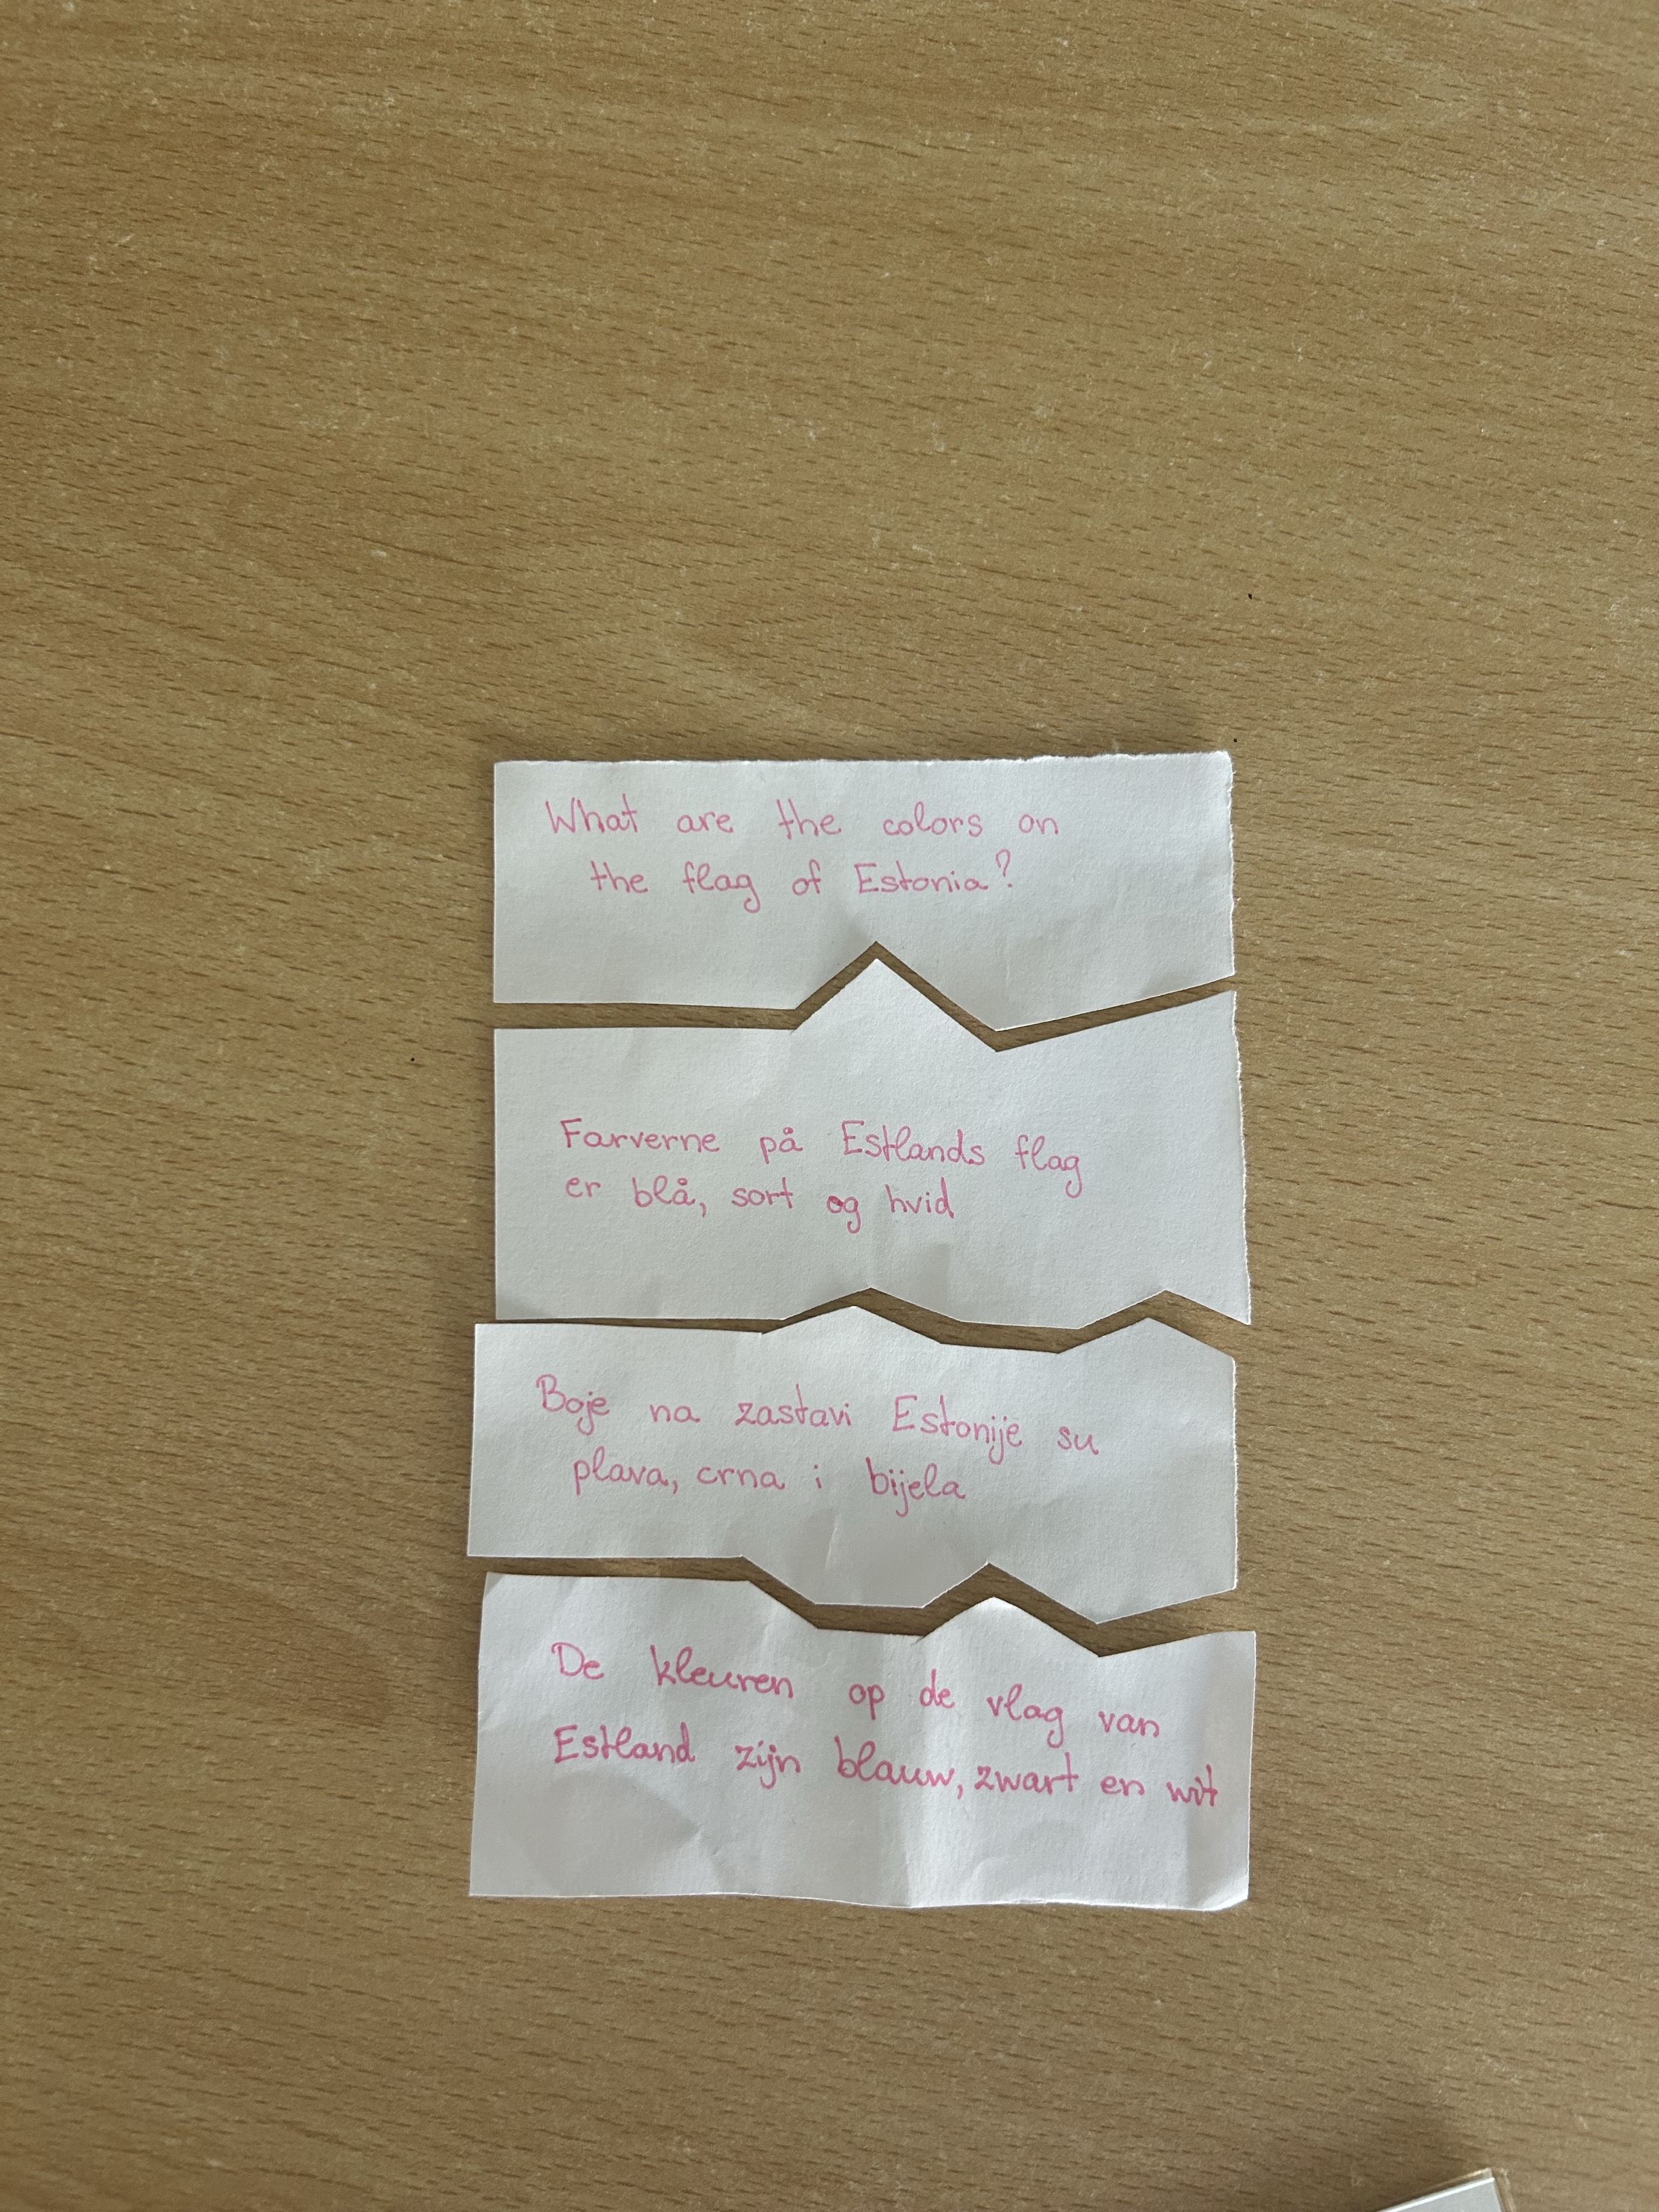 What are the colors on
the flag of Estonia?
Farverne på Estlands flag
er blå, sort og hvid
Boje na zastavi Estonije su
plava, crna i bijela
De kleuren op de vlag van
Estland zijn blauw, zwart en wit